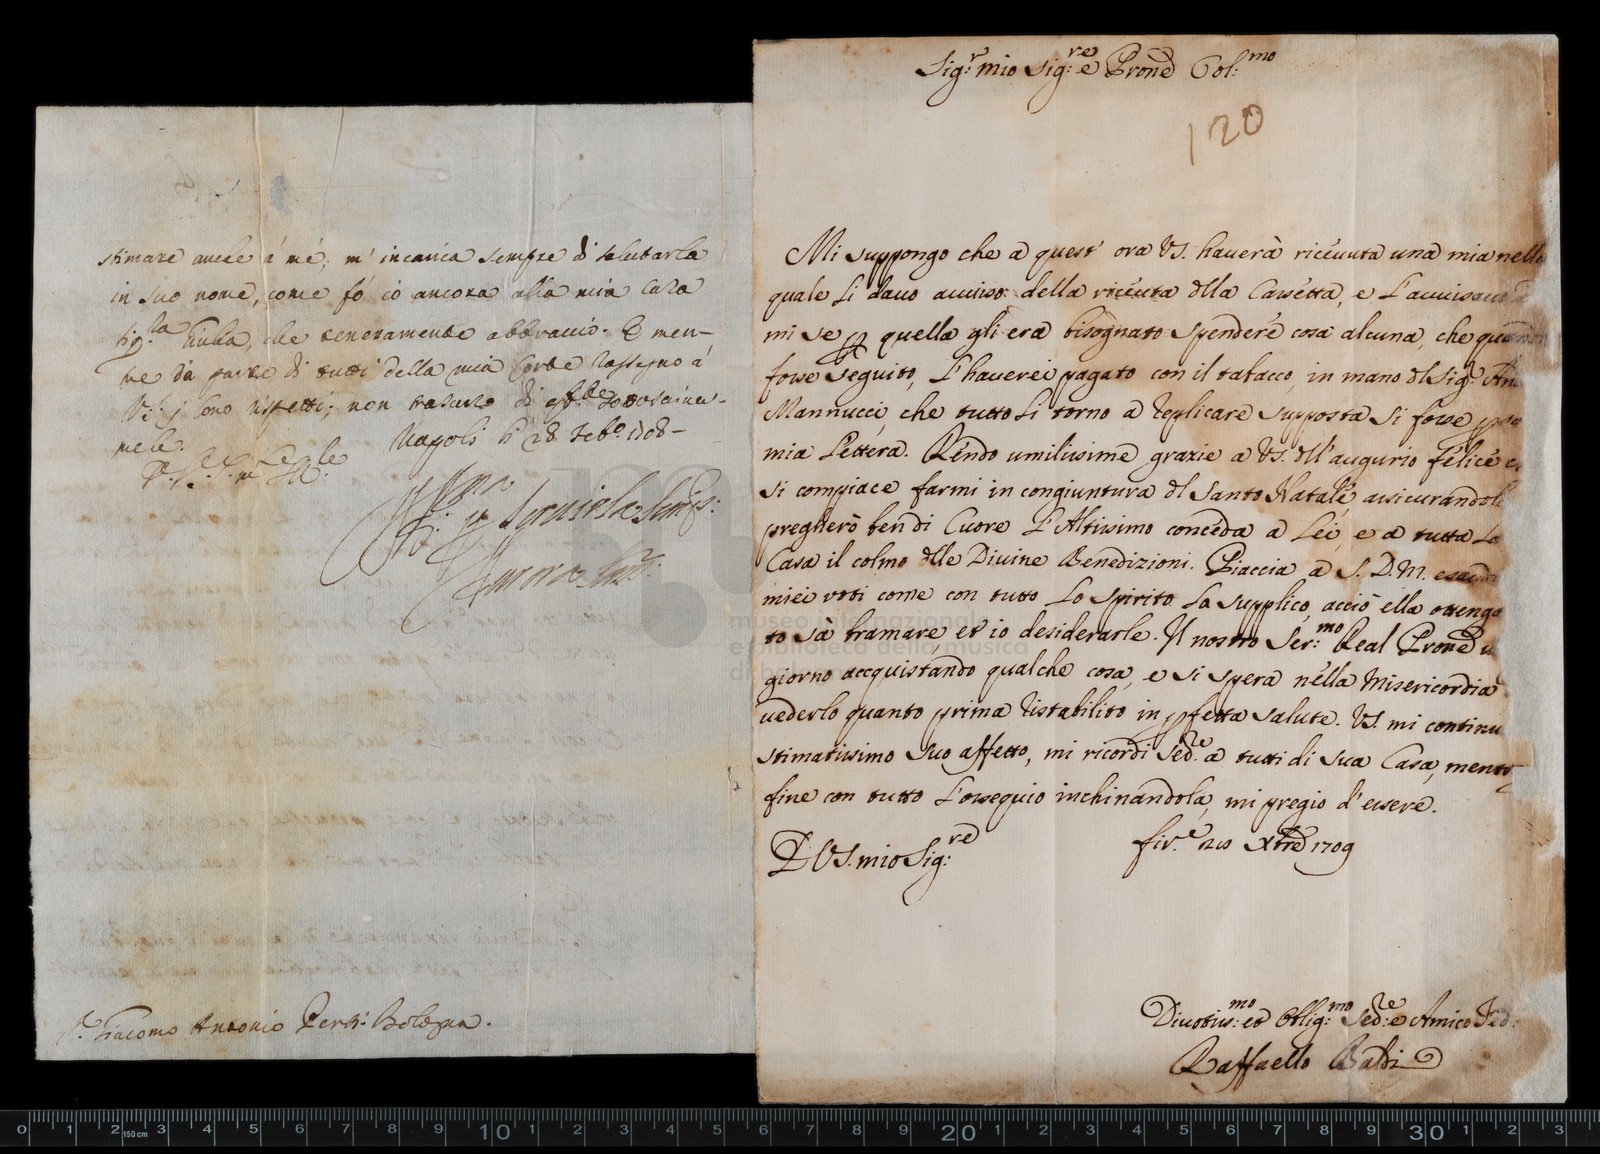 stimare anche á mé; m' incarica sempre di salutarla
in suo nome, come fó io ancora alla mia cara
Sig.ra Giulia, che teneramente abbraccio. E men-
tre dà parte di tutti della mia Corte rassegno á
V.S. i loro rispetti; non
mele.
Napoli li 28 Feb.o 1708-
S.r Giacomo Antonio Perti: Bologna.
Sig.r mio Sig.re e Prone Col.mo
120
Mi suppongo che a quest' ora VS. hauerà riceuuta una mia nella
quale Li dauo auuiso della riceuta dlla Cassetta, e L'auuisa
mi se p quella gli era bisognato spendere cosa alcuna, che
fosse seguito, L'hauerei pagato con il tabacco, in mano dl Sig.r
Mannucci, che tutto Li torno a replicare supposta si fosse
mia Lettera. Rendo umilissime grazie a VS. dll'augurio felice
si compiace farmi in congiuntura dl Santo Natale, assicurandola
pregherò ben di Cuore L'Altissimo conceda a Lei, e a tutta La
Casa il colmo dlle Diuine Benedizioni. Piaccia a S. D. M. esaudi
miei voti come con tutto Lo Spirito La supplico, acciò ella ottenga
to sà bramare et io desiderarle. Il nostro Ser.mo Real Prone
giorno accquistando qualche cosa, e si spera nella Misericordia
uederlo quanto prima ristabilito in pfetta salute. VS. mi continu
stimatissimo suo affetto, mi ricordi Sed.re a tutti di sua Casa, mentre
fine con tutto L'ossequio inchinandola, mi pregio d'essere.
D VS. mio Sig.re
Fir.e Xbre 1709
Diuotiss.mo et Oblig.mo Sed.re e Amico
Raffaello Baldi
museo internazionale
e biblioteca della musica
di bologna
0 1 2 3 4 5 6 7 8 9 10 1 2 3 4 5 6 7 8 9 20 1 2 3 4 5 6 7 8 9 30 1 2 3
150 cm